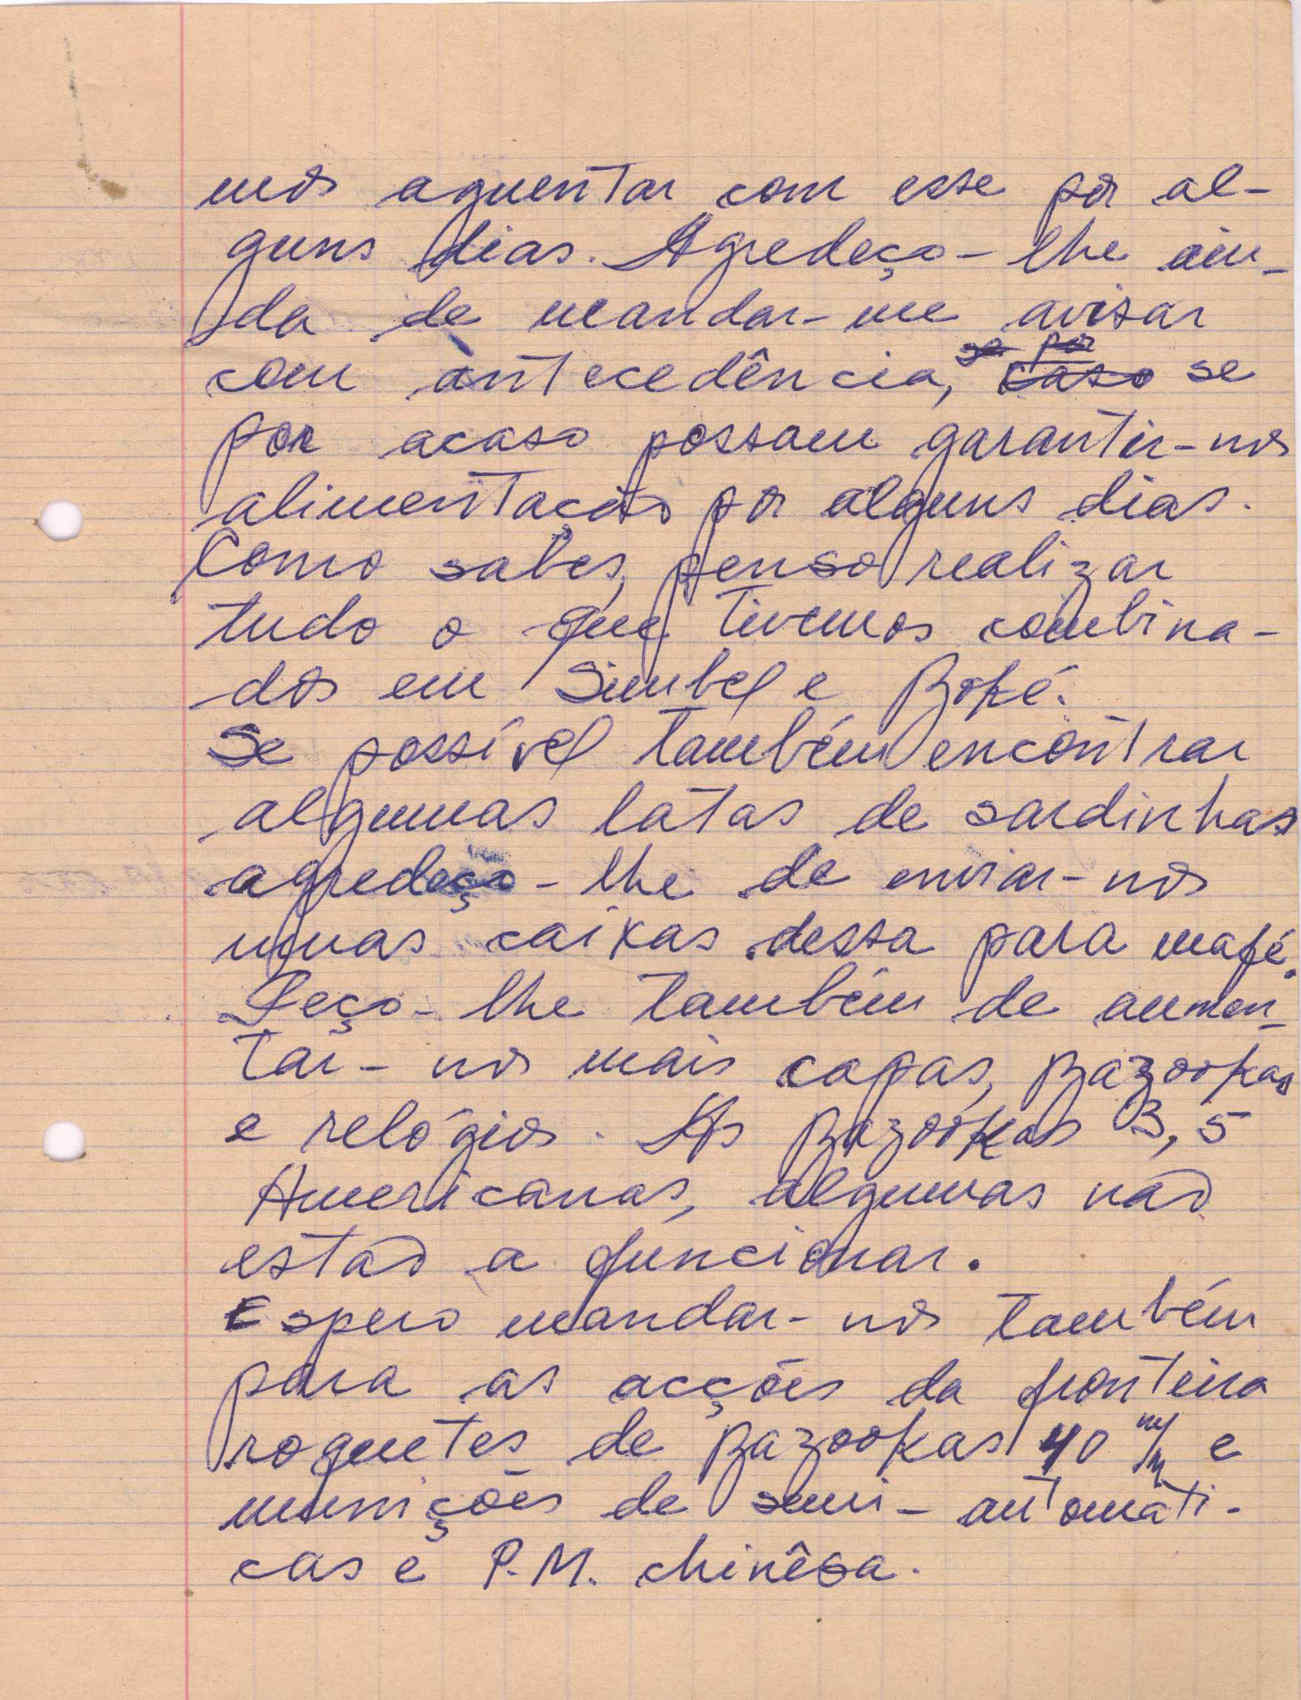 mos aguentar com esse por al-
guns dias. Agredeço-lhe ain-
da de mandar-me avisar
com antecedência, se por caso se
por acaso possam garantir-nos
alimentação por alguns dias.
Como sabes, penso realizar
tudo o que tivemos combina-
dos em Simbel e Boké.
Se possível também encontrar
algumas latas de sardinhas
agredeço-lhe de enviar-nos
umas caixas dessa para mafé.
Peço-lhe também de aumen-
tar-nos mais capas, Bazookas
e relógios. As Bazookas 3,5
Americanas, algumas não
estão a funcionar.
Espero mandar-nos também
para as acções da fronteira
roquetes de Bazookas 40 m/m e
munições de semi-automáti-
cas e P.M. chinêsa.